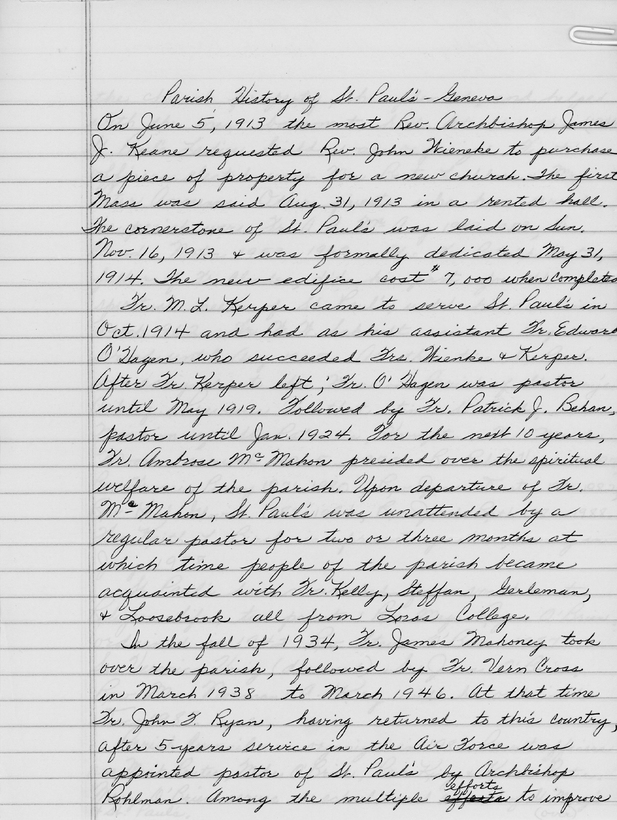 Parish History of St. Paul's - Geneva
On June 5, 1913 the most Rev. Archbishop James
J. Keane requested Rev. John Wieneke to purchase
a piece of property for a new church. The first
Mass was said Aug. 31, 1913 in a rented hall.
The cornerstone of St. Paul's was laid on Sun.
Nov. 16, 1913 & was formally dedicated May 31,
1914. The new edifice cost $7,000 when completed
Fr. M.L. Kerper came to serve St. Paul's in
Oct. 1914 and had as his assistant Fr. Edward
O'Hagen, who succeeded Frs. Wienke & Kerper.
After Fr. Kerper left; Fr. O'Hagen was pastor
until May 1919. Followed by Fr. Patrick J. Behan,
pastor until Jan. 1924. For the next 10 years,
Fr. Ambrose McMahon presided over the spiritual
welfare of the parish. Upon departure of Fr.
McMahon, St. Paul's was unattended by a
regular pastor for two or three months at
which time people of the parish became
acquainted with Fr. Kelly, Steffan, Gerleman,
& Loosebrook all from Loras College.
In the fall of 1934, Fr. James Mahoney took
over the parish, followed by Fr. Vern Cross
in March 1938 to March 1946. At that time
Fr. John F. Ryan, having returned to this country,
after 5 years service in the Air Force was
appointed pastor of St. Paul's by Archbishop
Rohlman. Among the multiple efforts to improve